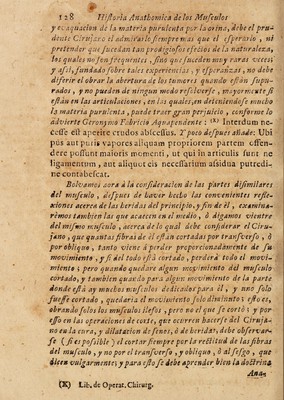 128 Historia Anathomica de los Musculos
y evaquacion de la materia purulenta por la orina, debe el pru-
dente Cirujano el admirarlo siempre mas que el esperarlo, ni
pretender que sucedan tan prodigiosos efectos de la naturaleza,
los quales no son frequentes, sino que suceden muy raras vezes;
y assi, fundado sobre tales experiencias, y esperanzas, no debe
diferir el obrar la abertura de los tumores quando están supu-
rados, y no pueden de ningun modo resolverse, mayormente si
están en las articulaciones, en las quales, en deteniendose mucho
la materia purulenta, puede traer gran perjuicio, conforme lo
advierte Geronymo Fabricio Aquapendente: (X) Interdum ne-
cesse est aperire crudos abscessus. Y poco despues añade: Ubi
pus aut puris vapores aliquam propriorem partem offen-
dere possunt maioris momenti, ut qui in articulis sunt ne
ligamentum, aut aliquot eis necessarium assidua putredi-
ne contabescat.
Bolvamos aora à la consideracion de las partes disimilares
del musculo, despues de haver hecho las convenientes refle-
xiones acerca de las heridas del principio, y fin de èl, examina-
rèmos tambien las que acaecen en el medio, ò digamos vientre
del mismo musculo, acerca de lo qual debe considerar el Ciru-
jano, que quantas fibras de èl están cortadas por transverso, ò
por obliquo, tanto viene à perder proporcionadamente de su
movimiento, y si del todo está cortado, perderá todo el movi-
miento; pero quando quedare algun movimiento al musculo
cortado, y tambien quando para algun movimiento de la parte
donde está ay muchos musculos dedicados para èl, y uno solo
fuesse cortado, quedaria el movimiento solo diminuto: esto es,
obrando solos los musculos ilesos, pero no el que se cortò; y por
esso en las operaciones de corte, que ocurren hacerse del Ciruja-
no en la cura, y dilatacion de senos, ò de heridas, debe observar-
se (si es possible) el cortar siempre por la rectitud de las fibras
del musculo, y no por el transverso, y obliquo, ò al sesgo, que
dicen vulgarmente; y para esto se debe aprender bien la doctrina
Ana-
(X) Lib. de Operat. Chirurg.